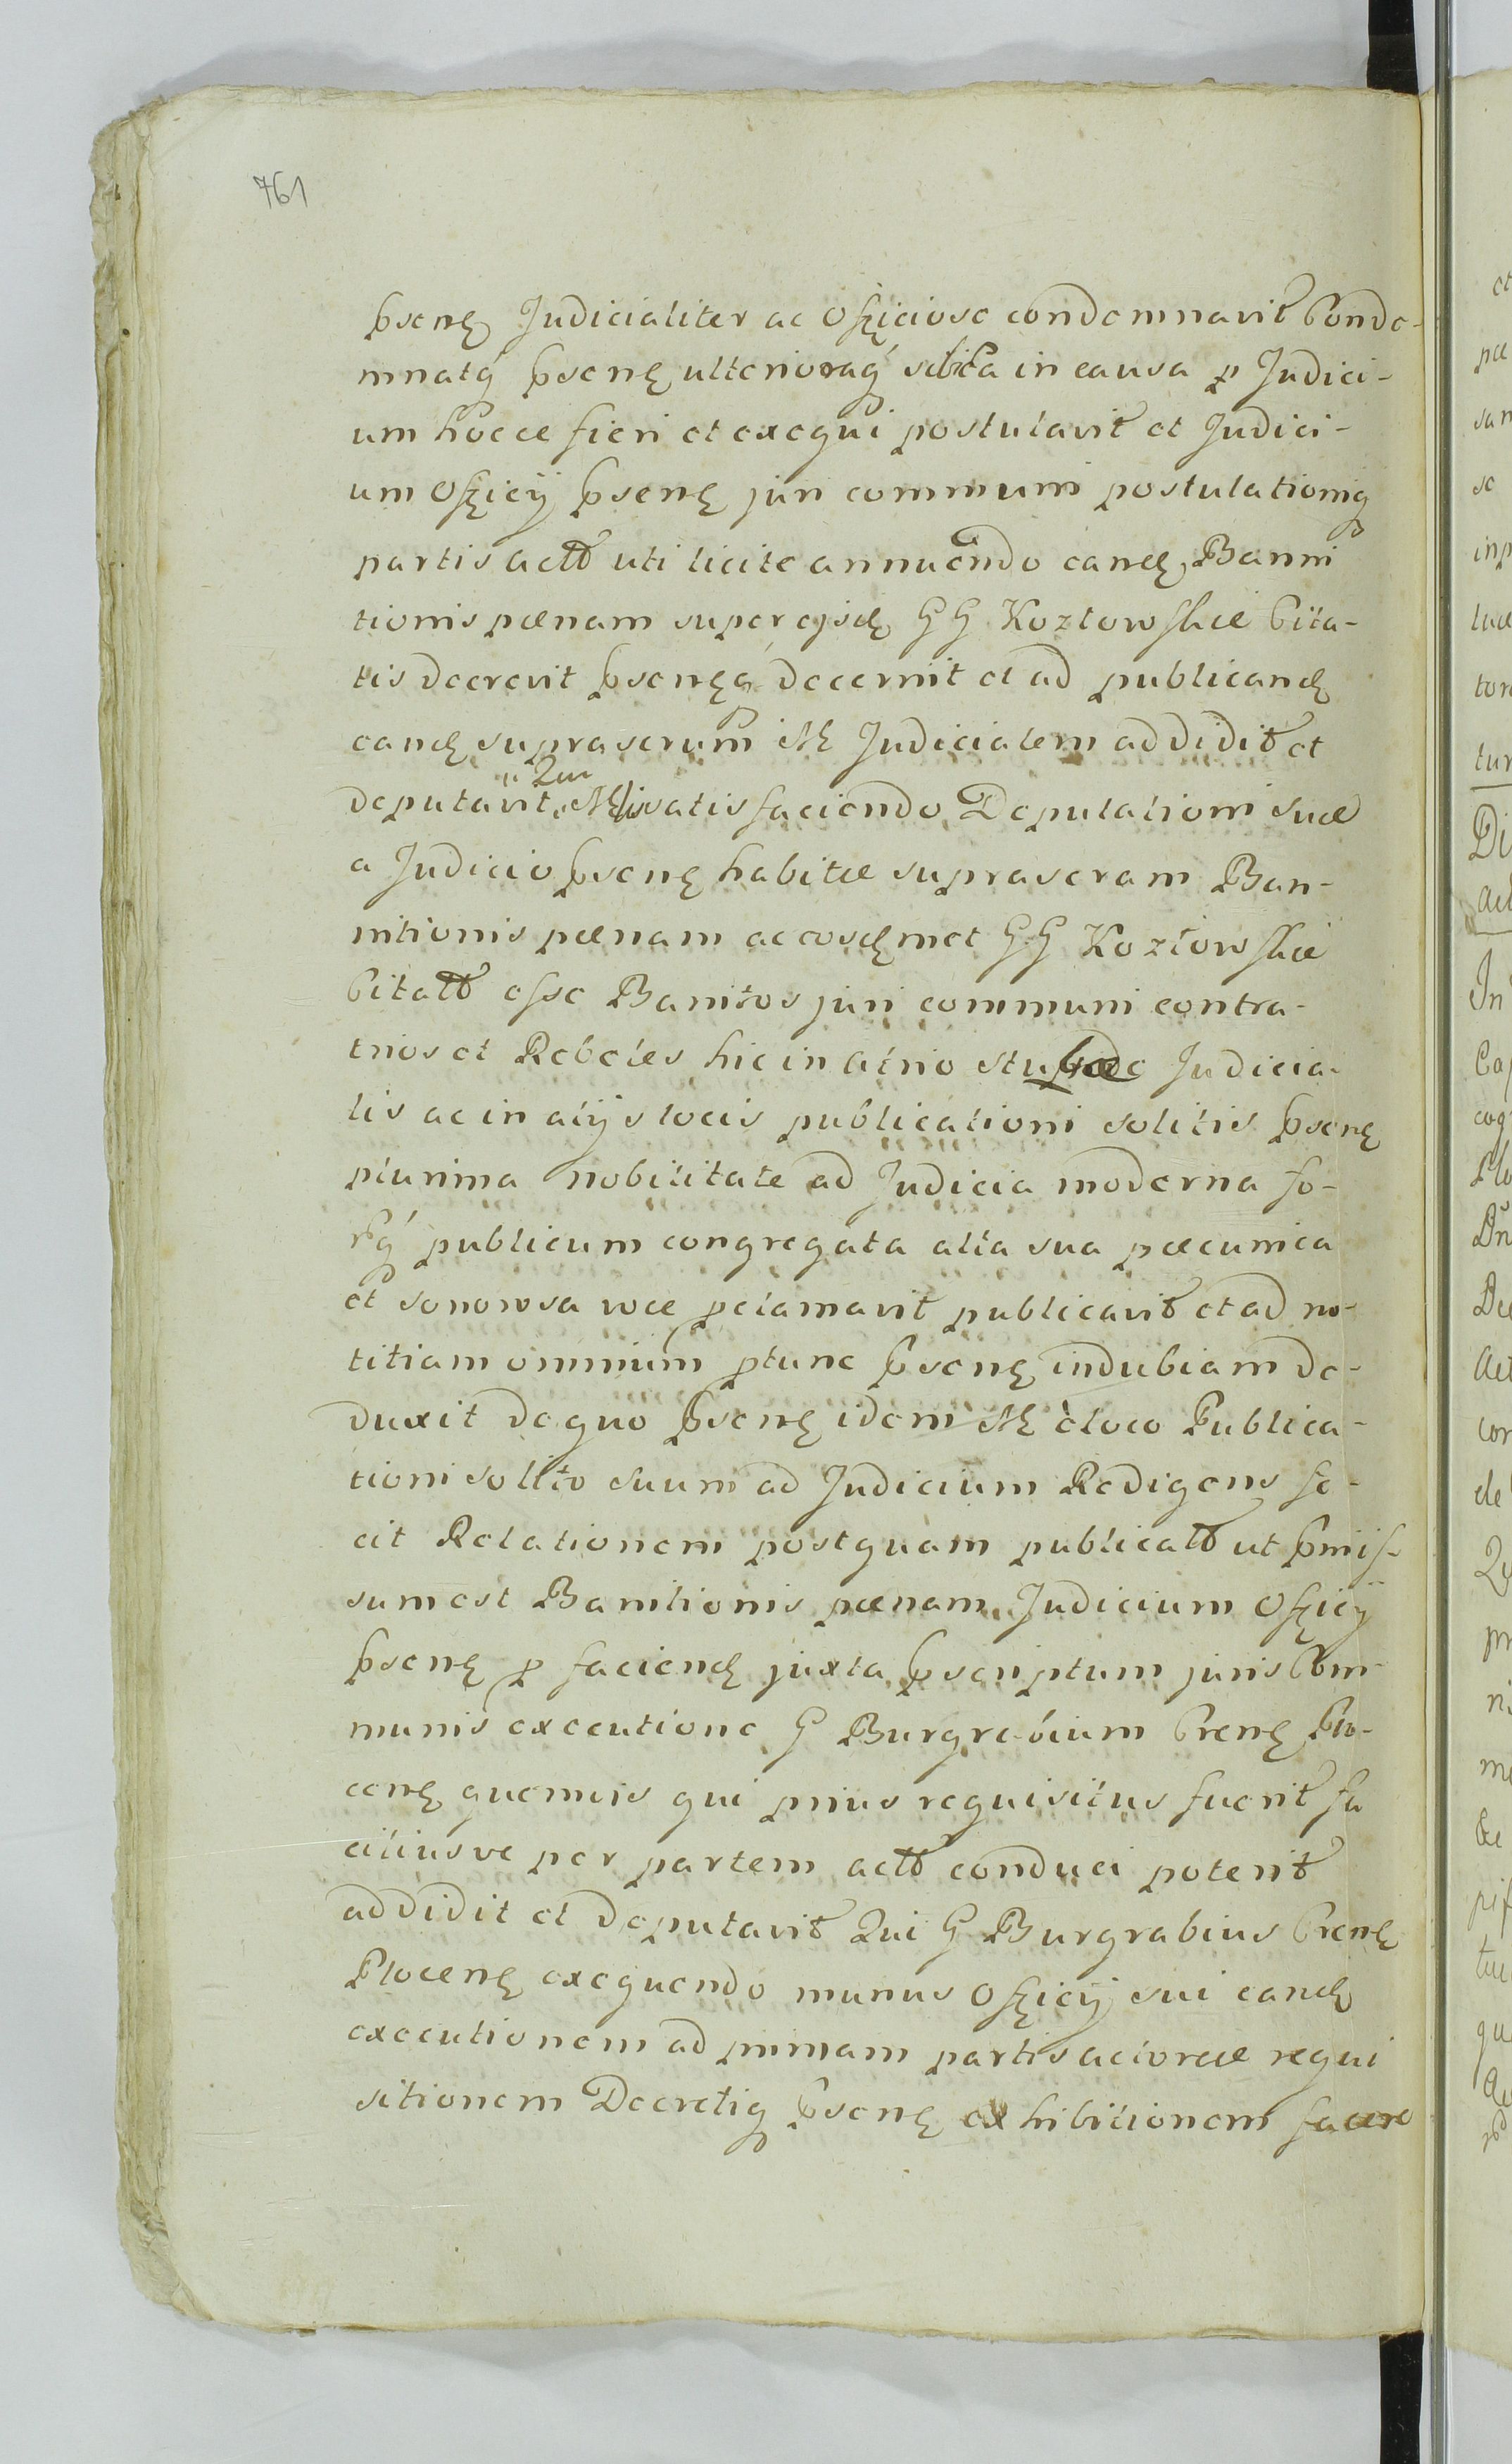 761
psenę Judicialiter ac Officiose condemnavit Conde-
mnatq psenę ulterioraq in causa p Judici-
um hocce fieri et exequi postulavit et Judici-
um Officÿ psenę juri communi postulationiq
partis uti licite annuendo eandę Banni
tionis pænam super ejsdę GG Kozłowskie Cita-
tis decrevit psenęq decernit et ad publicandę
eandę suprascrum Judicialem addidit et
Qui
deputavit satisfaciendo Deputationi suæ
a Judicio psenę habitæ suprascram Ban-
nitionis pænam ac eosdęmet GG Kozłowskie
esse Banitos juri communi contra-
rios et Rebeles hic in atrio Judicia-
lis ac in alÿs locis publicationi solitis psenę
plurima nobilitate ad Judicia moderna fo-
rq publicum congregata alta sua pæcunica
et sonorosa voce pclamavit publicavit et ad no-
titiam omnium ptunc psenę indubiam de-
duxit de quo psenę idem e loco Publica-
tioni solito suum ad Judicium Redigens fe-
cit Relationem postquam ut pmis-
sum est Banitionis pænam Judicium Officÿ
psenę p faciendę juxta pscriptum juris Com-
munis executione G Burgrabium Crenę Plo-
cenę quemvis qui prius requisitus fuerit fa
ciliusve per partem conduci poterit
addidit et deputavit Qui G Burgrabius Crenę
Plocenę exequendo munus Officÿ sui eandę
executionem ad primam partis actoreæ requi
sitionem Decretiq psenę exhibitionem facere